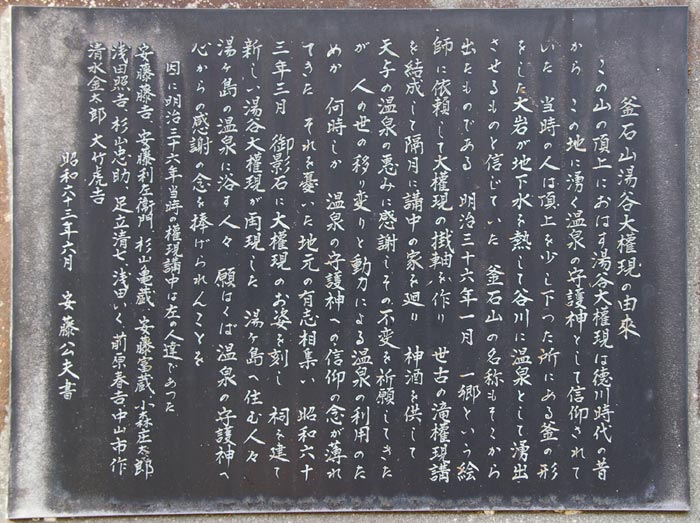 釜石山湯谷大權現の由來
この山の頂上におはす湯谷大權現は徳川時代の昔
から この地に湧く温泉の守護神として信仰されて
いた 当時の人は頂上を少し下った所にある釜の形
をした大岩が地下水を熱して谷川に温泉として湧出
させるものと信じていた 釜石山の名称もそこから
出たものである 明治三十六年一月 一郷という絵
師に依頼して大權現の掛軸を作り 世古の滝權現講
を結成して隔月に講中の家を廻り 神酒を供して
天与の温泉の恵みに感謝しその不変を祈願してきた
が 人の世の移り変りと動力による温泉の利用のた
めか 何時しか 温泉の守護神への信仰の念が薄れ
てきた それを憂いた地元の有志相集い 昭和六十
三年三月 御影石に大權現のお姿を刻し 祠を建て
新しい湯谷大權現が再現した 湯ヶ島へ住む人々
湯ヶ島の温泉に浴す人々 願はくば温泉の守護神へ
心からの感謝の念を捧げられんことを
因に明治三十六年当時の權現講中は左の人達であった
安藤藤吉 安藤利左衛門 杉山亀蔵 安藤富蔵 小森庄太郎
浅田照吉 杉山忠助 足立清七 浅田いく 前原春吉 中山市作
清水金太郎 大竹虎吉
昭和六十三年六月 安藤公夫書